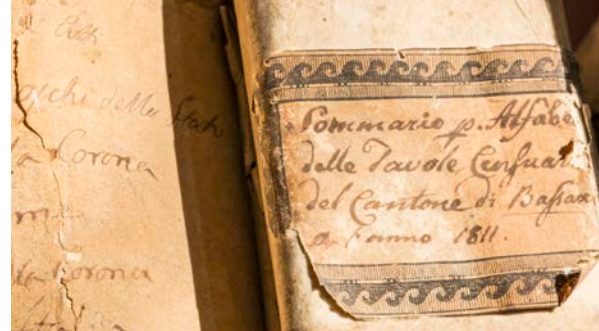 dello Stato
la Corona
la Corona
Sommario p. Alfabe
delle Tavole Censuar
del Cantone di Bassan
p. l'anno 1811.